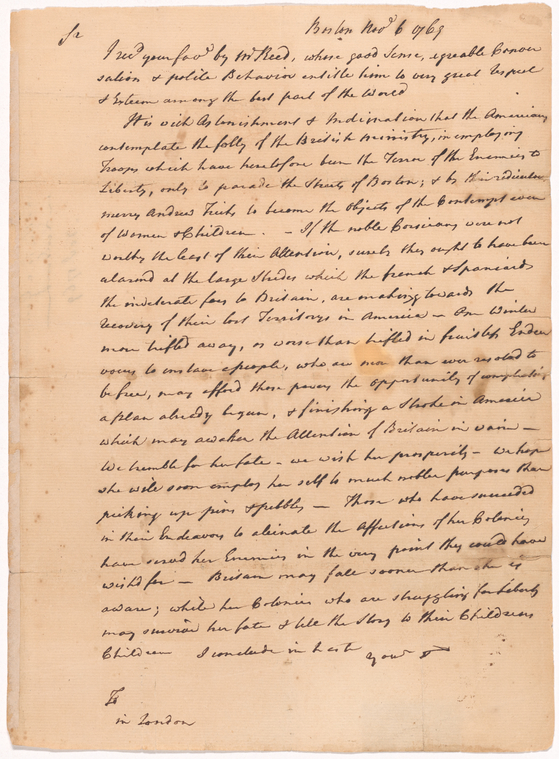 Boston Novr 6 1769
Sr
I recd your favr by Mr Reed, whose good Sense, agreable Conver
sation & polite Behavior entitle him to very great Respect
& Esteem among the best part of the World
It is with Astonishment & Indignation that the Americans
contemplate the folly of the British ministry, in employing
Troops which have heretofore been the Terror of the Enemies to
Liberty, only to parade the Streets of Boston; & by their ridiculous
merry Andrew Tricks to become the Objects of the Contempt even
of Women & Children. - If the noble Corsicans were not
worthy the least of their Attention, surely they ought to have been
alarmd at the large Strides which the french & Spaniards
the inveterate foes to Britain, are making towards the
recovery of their lost Territorys in America - One Winter
more trifled away, or worse than trifled in fruitless Endea
vours to enslave a people, who are more than ever resolvd to
be free, may afford those powers the opportunity of compleating
a plan already begun, & finishing a Stroke in America
which may awaken the Attention of Britain in vain -
We tremble for her fate - we wish her prosperity - we hope
she will soon employ her self to much nobler purposes than
picking up pins & pebbles - Those who have succeeded
in their Endeavors to alienate the Affections of her Colonies
have servd her Enemies in the very point they could have
wishd for - Britain may fall sooner than she is
aware; while her Colonies who are struggling for Liberty
may survive her fate & tell the Story to their Childrens
Children I conclude in hast
Your
To
in London